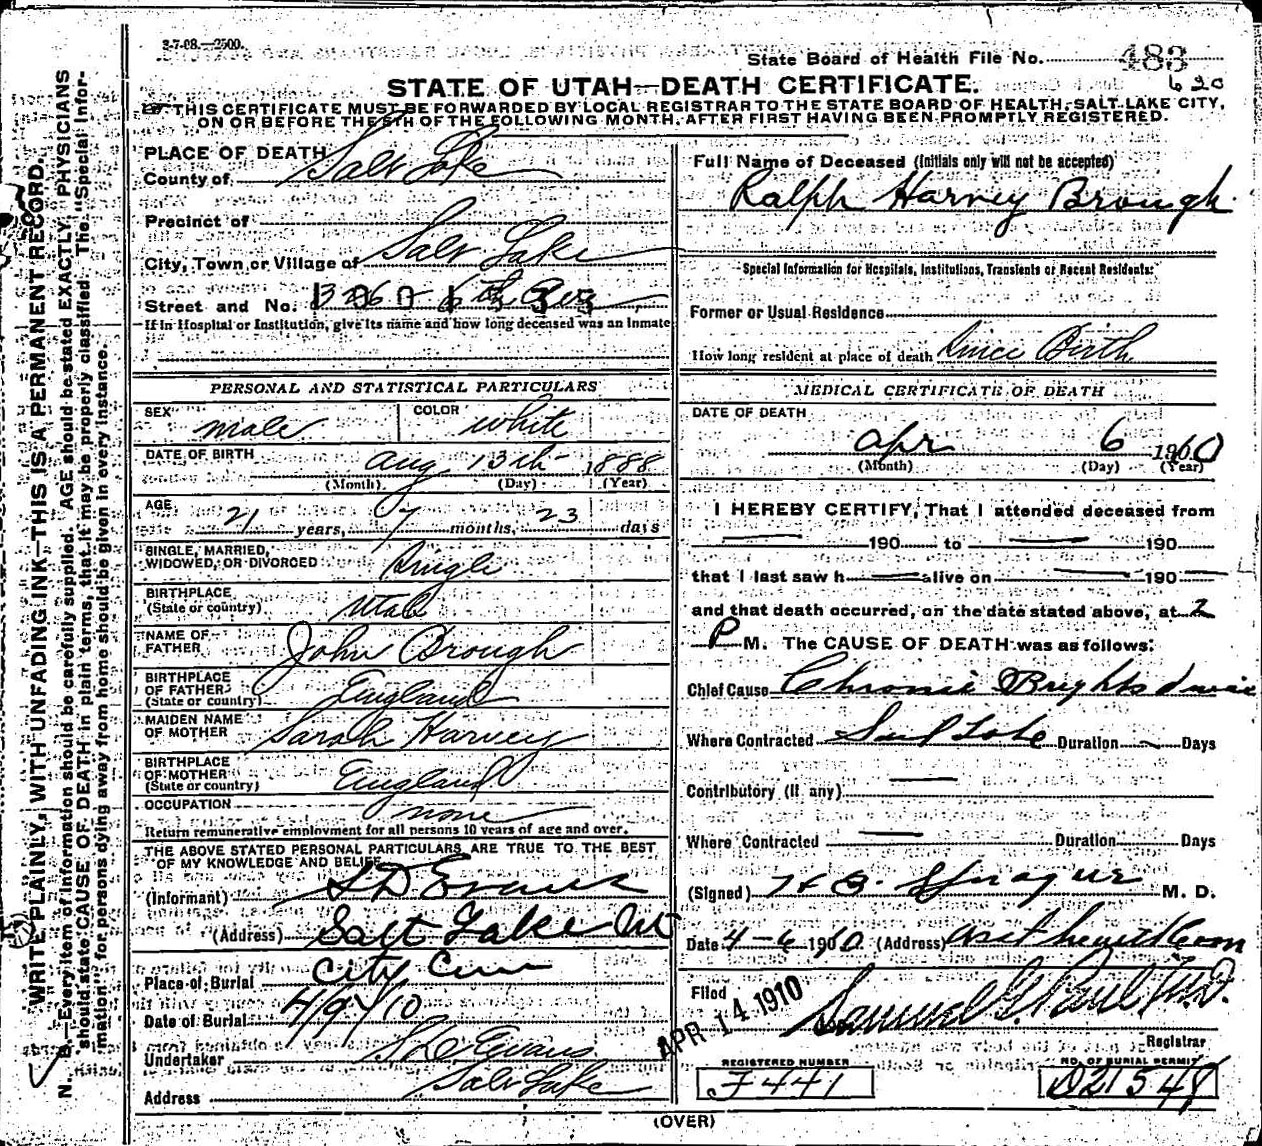 3-7-08.—2500.
State Board of Health File No. 483
620
STATE OF UTAH—DEATH CERTIFICATE.
THIS CERTIFICATE MUST BE FORWARDED BY LOCAL REGISTRAR TO THE STATE BOARD OF HEALTH, SALT LAKE CITY,
ON OR BEFORE THE 5TH OF THE FOLLOWING MONTH, AFTER FIRST HAVING BEEN PROMPTLY REGISTERED.
WRITE PLAINLY, WITH UNFADING INK—THIS IS A PERMANENT RECORD.
N. B.—Every item of information should be carefully supplied. AGE should be stated EXACTLY. PHYSICIANS
should state CAUSE OF DEATH in plain terms, that it may be properly classified. The "Special Infor-
mation" for persons dying away from home should be given in every instance.
PLACE OF DEATH
County of Salt Lake
Precinct of
City, Town or Village of Salt Lake
Street and No. 6th
If in Hospital or Institution, give its name and how long deceased was an inmate
PERSONAL AND STATISTICAL PARTICULARS
SEX male COLOR white
DATE OF BIRTH Aug 13th 1888
(Month) (Day) (Year)
AGE 21 years, 7 months, 23 days
SINGLE, MARRIED,
WIDOWED, OR DIVORCED Single
BIRTHPLACE
(State or country) Utah
NAME OF
FATHER John Brough
BIRTHPLACE
OF FATHER
(State or country) England
MAIDEN NAME
OF MOTHER Sarah Harvey
BIRTHPLACE
OF MOTHER
(State or country) England
OCCUPATION none
Return remunerative employment for all persons 10 years of age and over.
THE ABOVE STATED PERSONAL PARTICULARS ARE TRUE TO THE BEST
OF MY KNOWLEDGE AND BELIEF
(Informant) S D Evans
(Address) Salt Lake
Place of Burial City Cem
Date of Burial 4/9/10
Undertaker S D Evans
Address Salt Lake
Full Name of Deceased (Initials only will not be accepted)
Ralph Harvey Brough
Special Information for Hospitals, Institutions, Transients or Recent Residents:
Former or Usual Residence
How long resident at place of death Since Birth
MEDICAL CERTIFICATE OF DEATH
DATE OF DEATH
Apr 6 1910
(Month) (Day) (Year)
I HEREBY CERTIFY, That I attended deceased from
190 to 190
that I last saw h alive on 190
and that death occurred, on the date stated above, at 2
P M. The CAUSE OF DEATH was as follows:
Chief Cause Chronic Brights disease
Where Contracted Salt Lake Duration Days
Contributory (If any)
Where Contracted Duration Days
(Signed) H B. Sprague M. D.
Date 4-6 1910 (Address)
Filed APR 14 1910 Samuel G. Paul M.D.
Registrar
REGISTERED NUMBER
J 441
NO. OF BURIAL PERMIT
D21548
(OVER)